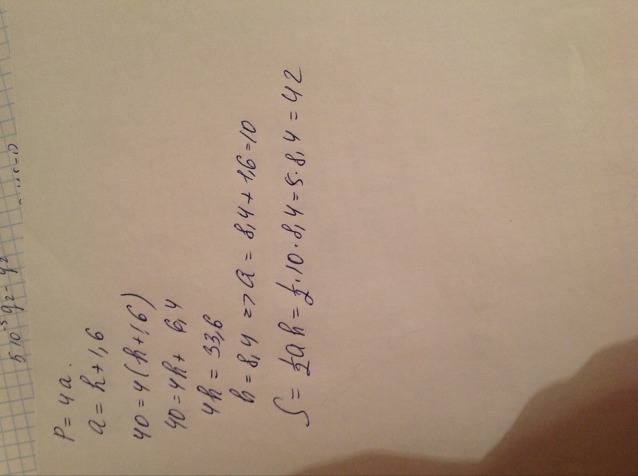 P = 4a.
a = h + 1,6
40 = 4(h + 1,6)
40 = 4h + 6,4
4h = 33,6
h = 8,4 => a = 8,4 + 1,6 = 10
S = ½ah = ½·10·8,4 = 5·8,4 = 42